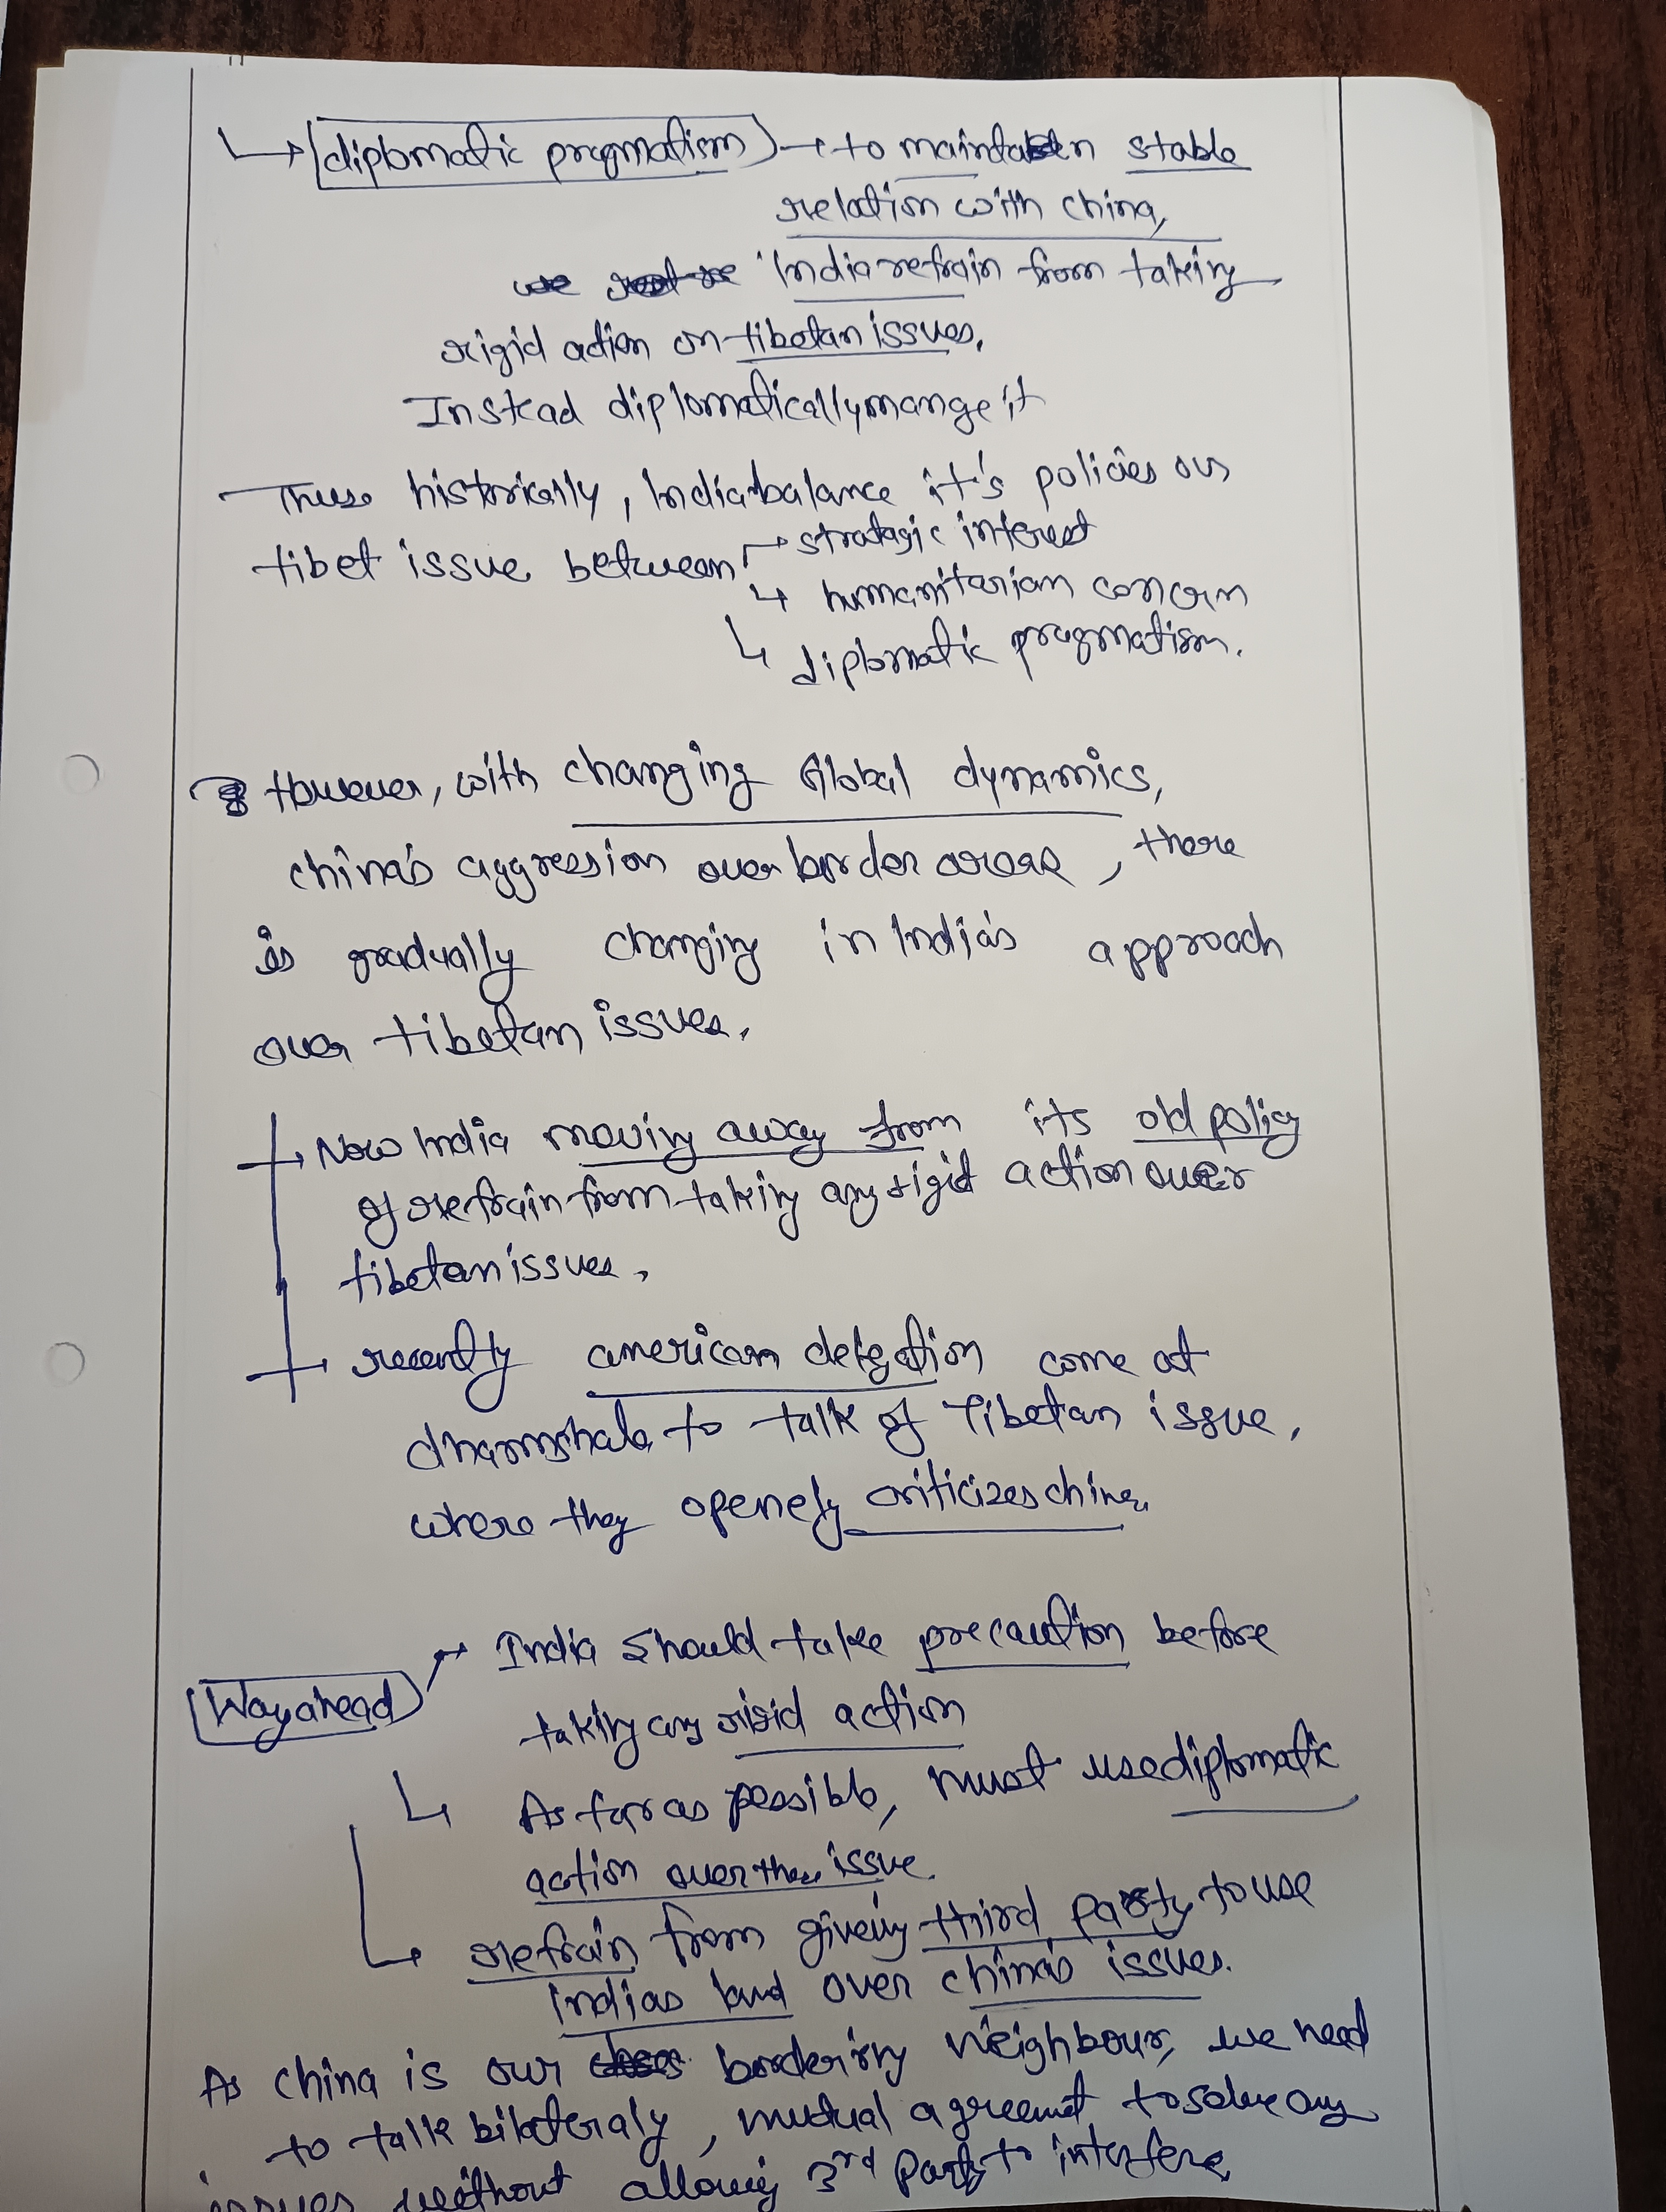 diplomatic pragmatism → to maintain stable
relation with china,
India refrain from taking
rigid action on tibetan issues,
Instead diplomatically mange it
Thus historically, India balance it's policies on
tibet issue between → strategic interest
↳ humanitarian concern
↳ diplomatic pragmatism.
However, with changing Global dynamics,
china's aggression over border areas, there
is gradually changing in India's approach
over tibetan issues.
→ Now India moving away from its old policy
of refrain from taking any rigid action over
tibetan issues,
→ recently american delegation come at
dharmshala to talk of Tibetan issue,
where they openely criticizes china.
Way ahead → India should take precaution before
taking any rigid action
↳ As far as possible, must use diplomatic
action over the issue.
↳ refrain from giveing third party to use
Indias land over china's issues.
As china is our bordering neighbour, we need
to talk bilateraly, mutual agreement to solve any
issues without allowing 3rd party to interfere